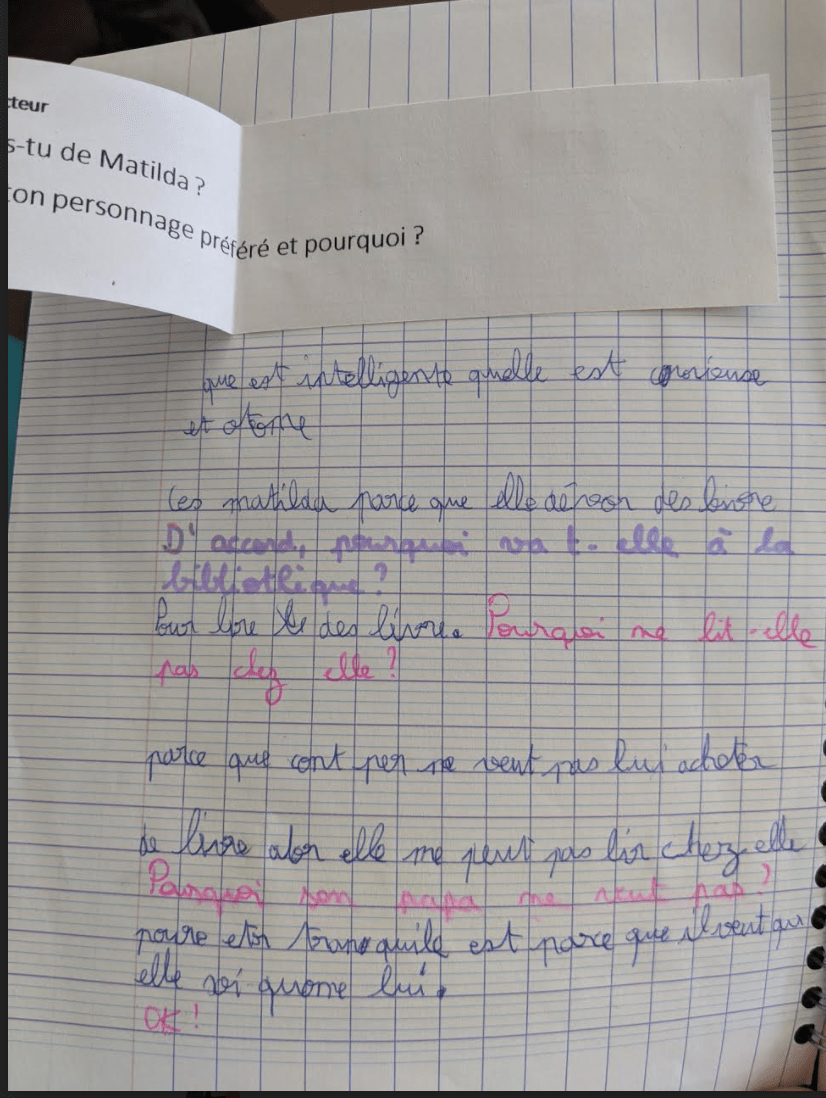 cteur
s-tu de Matilda ?
ton personnage préféré et pourquoi ?
que est intelligente quelle est curieuse
et otome
ces matilda parce que elle dévoor des livre
D'accord, pourquoi va t-elle à la
bibliothèque ?
Pour lire des livre. Pourquoi ne lit-elle
pas chez elle ?
parce que cont per ne veut pas lui acheter
de livre alor elle ne peut pas lir chez elle
Pourquoi son papa ne veut pas ?
poure etr tranquile est parce que il veut qu
elle soi quome lui.
OK !